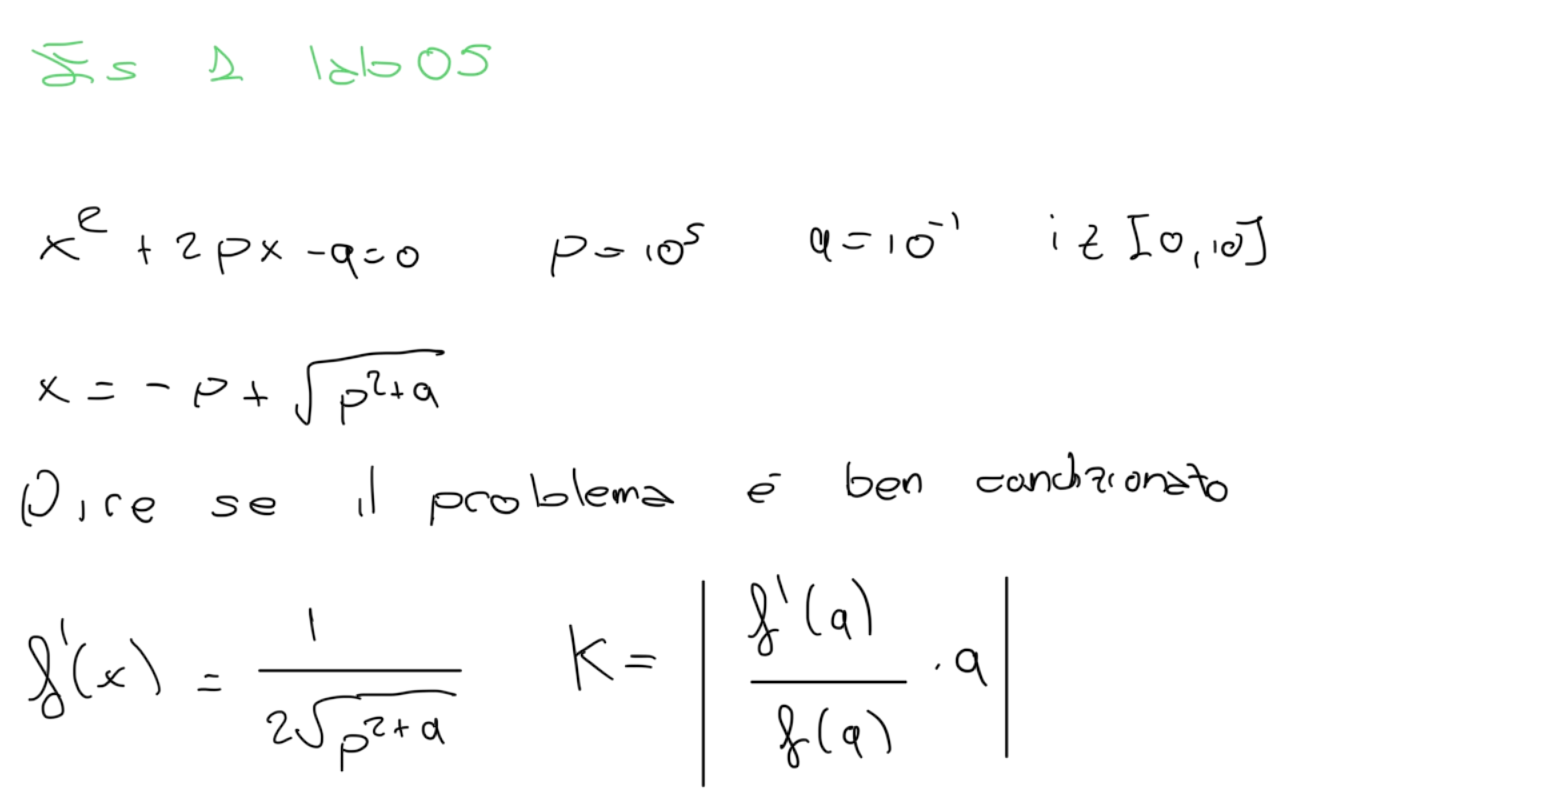 Es 1 lab05
x² + 2px - q = 0 p = 10⁵ q = 10⁻¹ i ∈ [0,10]
x = - p + √(p²+q)
Dire se il problema è ben condizionato
f'(x) = 1 / (2√(p²+q)) K = | f'(q) / f(q) · q |